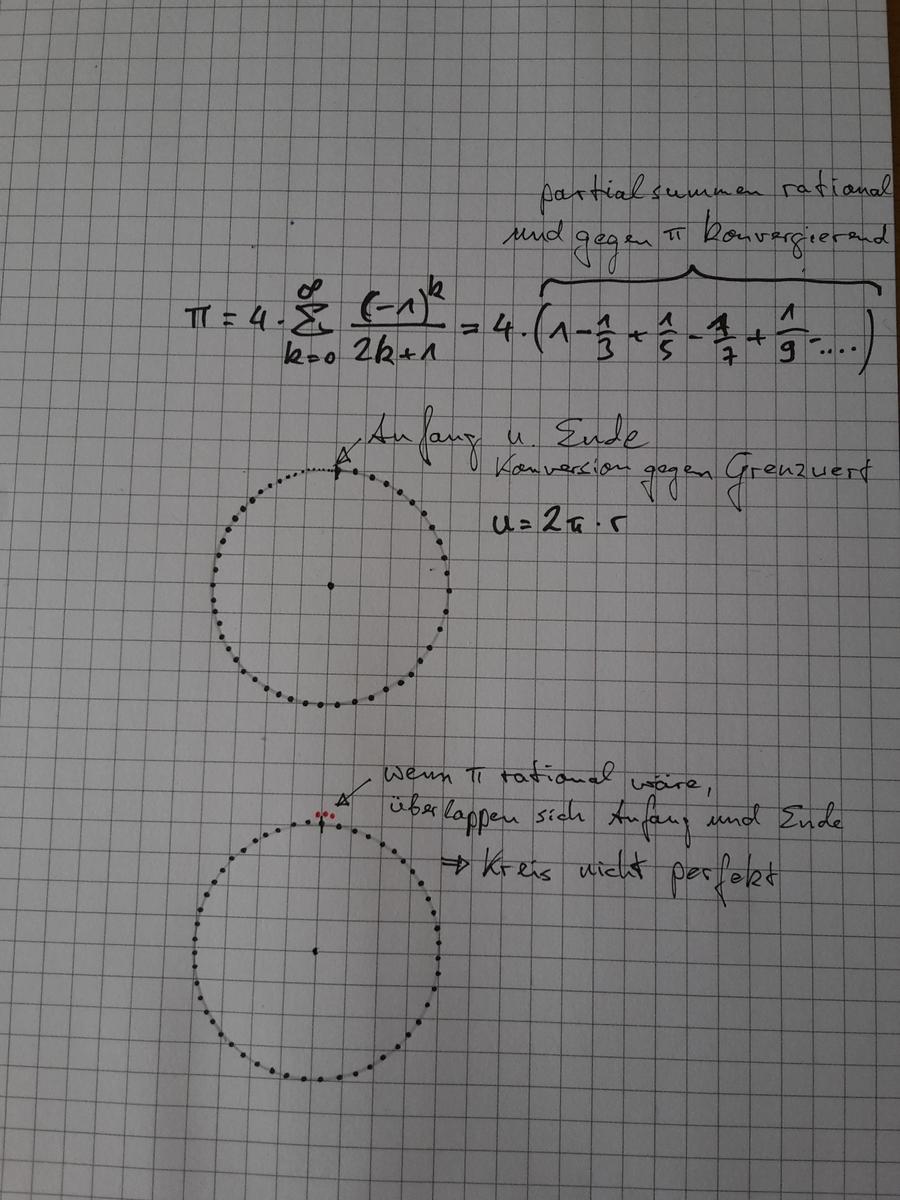 partialsummen rational
und gegen π konvergierend
π = 4 · ∞ Σ k=0 (-1)^k / 2k+1 = 4 · (1 - 1/3 + 1/5 - 1/7 + 1/9 - ....)
Anfang u. Ende
Konversion gegen Grenzwert
u = 2π · r
wenn π rational wäre,
überlappen sich Anfang und Ende
⇒ Kreis nicht perfekt